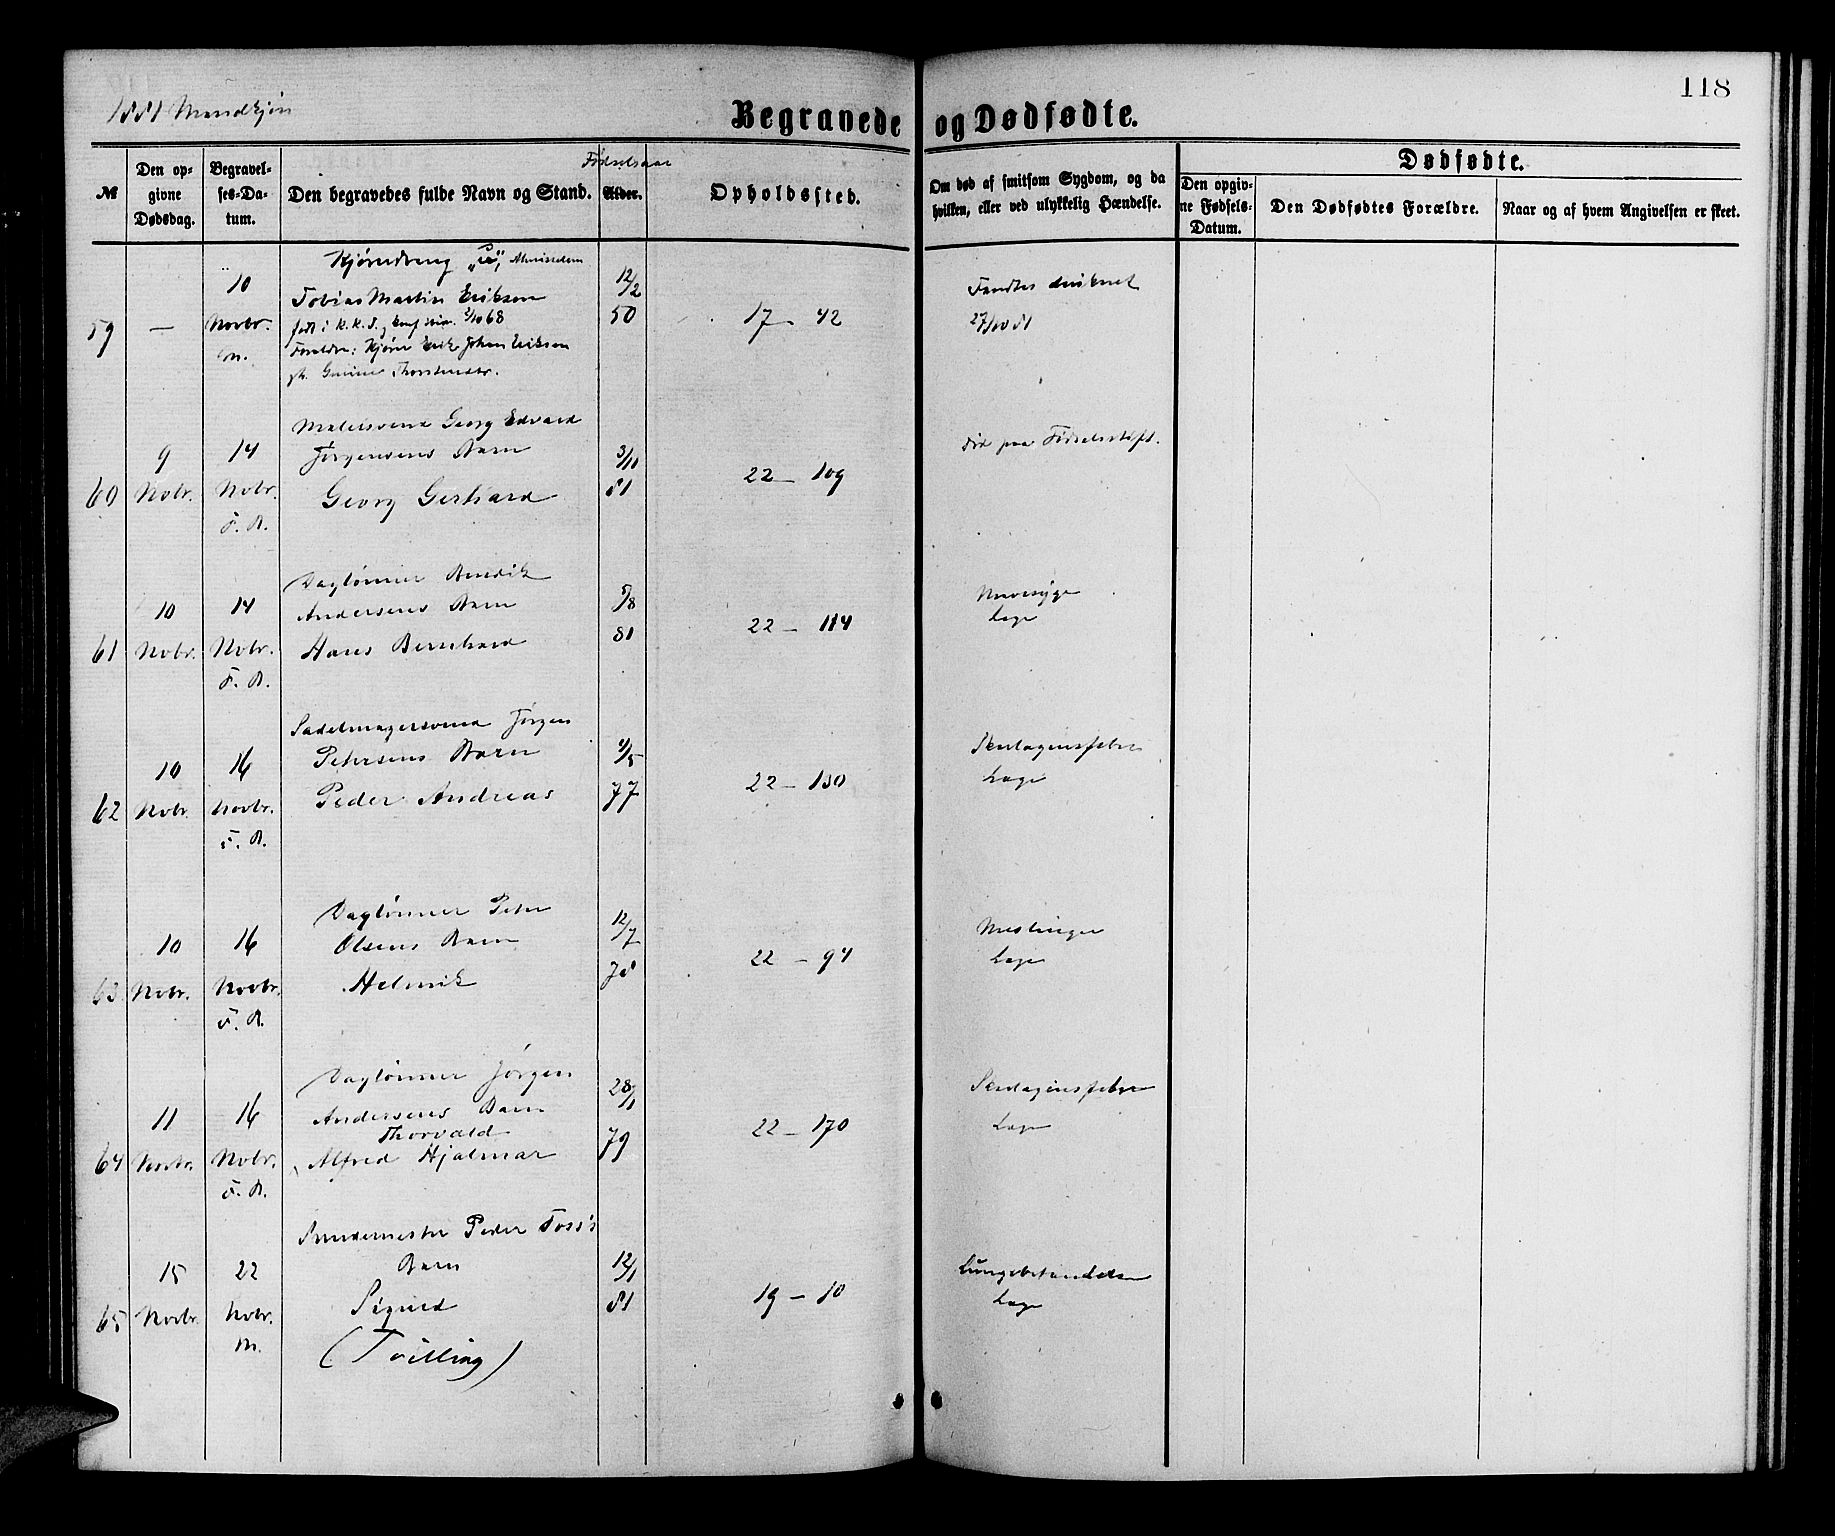 118
1881 Mandkjøn
Begravede og Dødfødte.
№
Den opgivne Dødsdag.
Begravelses-Datum.
Den begravedes fulde Navn og Stand.
Fødselsaar
Alder.
Opholdssted.
Om død af smitsom Sygdom, og da hvilken, eller ved ulykkelig Hændelse.
Dødfødte.
Den opgivne Fødsels-Datum.
Den Dødfødtes Forældre.
Naar og af hvem Angivelsen er skeet.
59 — 10 Novbr. M.
Kjøredreng
Tobias Martin Eriksen
født i K.K.S.
Forældre: Kjører Erik Johan Eriksen
Thorstensdtr.
12/2 50
17 - 42
Fandtes druknet
27/10 81
60 9 Nvbr. 14 Nvbr. F. A.
Malersvend Georg Edvard
Jørgensens Barn
Georg Gerhard
3/10 81
22 - 109
Død paa Fødselsstift.
61 10 Nvbr. 14 Nvbr. F. A.
Daglønner Bendik
Andersens Barn
Hans Bernhard
5/8 81
22 - 114
Mavesyge
Læge
62 10 Nvbr. 16 Novbr. F. A.
Sadelmagersvend Jørgen
Petersens Barn
Peder Andreas
4/5 77
22 - 130
Skarlagensfeber
Læge
63 10 Nvbr. 16 Novbr. F. A.
Daglønner Peter
Olsens Barn
Helmik
12/7 78
22 - 94
Meslinger
Læge
64 11 Novbr. 16 Nvbr. F. A.
Daglønner Jørgen
Andersens Barn
Thorvald
Alfred Hjalmar
28/1 79
22 - 170
Skarlagensfeber
Læge
65 15 Novbr. 22 Nvbr. M.
Snedkermester Peder Foss's
Barn
Sigurd
(Tvilling)
12/1 81
19 - 10
Lungebetændelse
Læge